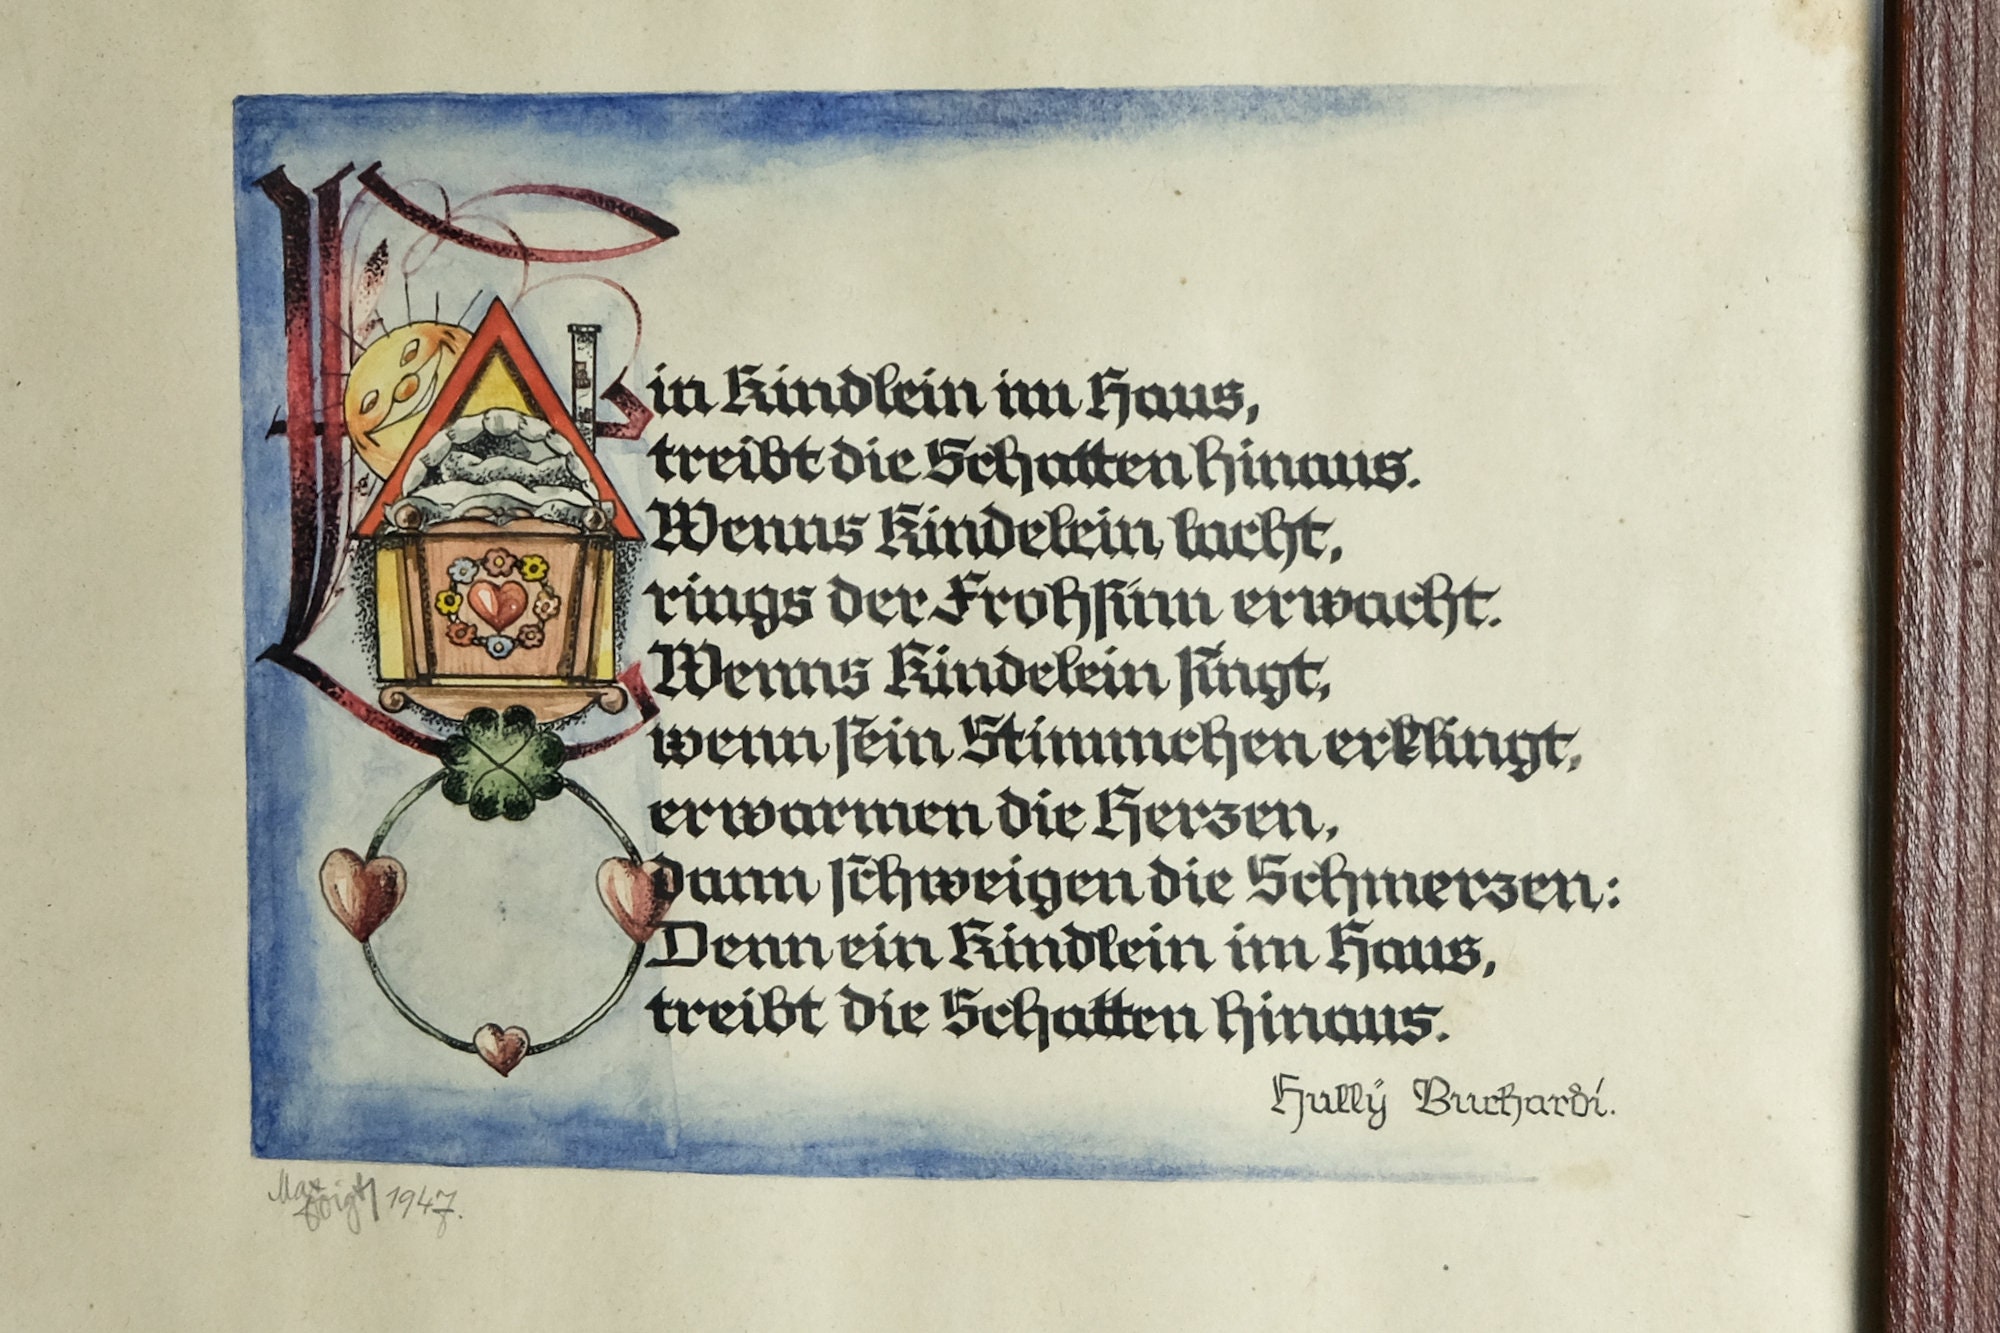 Ein Kindlein im Haus,
treibt die Schatten hinaus.
Wenns Kindelein lacht,
rings der Frohsinn erwacht.
Wenns Kindelein singt,
wenn sein Stimmchen erklingt,
erwarmen die Herzen,
dann schweigen die Schmerzen:
Denn ein Kindlein im Haus,
treibt die Schatten hinaus.
Hullÿ Buchardi.
Max
Voigt 1947.